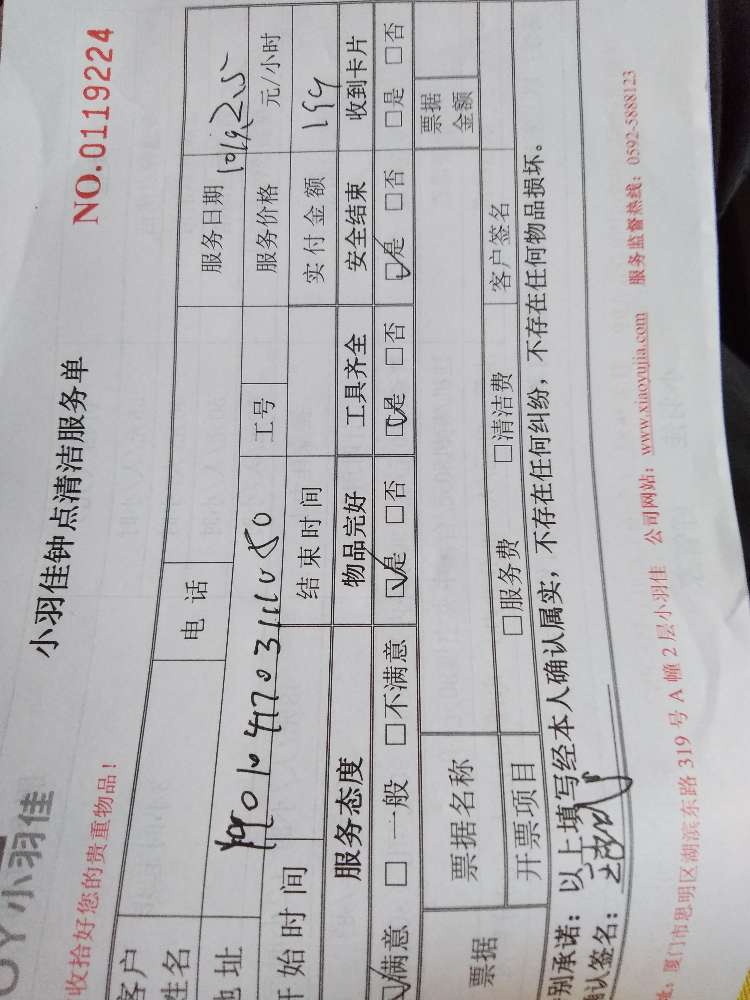 OY小羽佳
小羽佳钟点清洁服务单
NO.0119224
收拾好您的贵重物品!
客户姓名 电话 服务日期 2019.2.5
地址 工号 服务价格 元/小时
开始时间 结束时间 实付金额 199
服务态度 物品完好 工具齐全 安全结束 收到卡片
☑满意 □一般 □不满意 ☑是 □否 ☑是 □否 ☑是 □否 □是 □否
票据 票据名称 票据金额
开票项目 □服务费 □清洁费 客户签名
别承诺:以上填写经本人确认属实,不存在任何纠纷,不存在任何物品损坏。
认签名:
厦门市思明区湖滨东路 319 号 A 幢 2 层小羽佳 公司网站:www.xiaoyujia.com 服务监督热线:0592-5888123